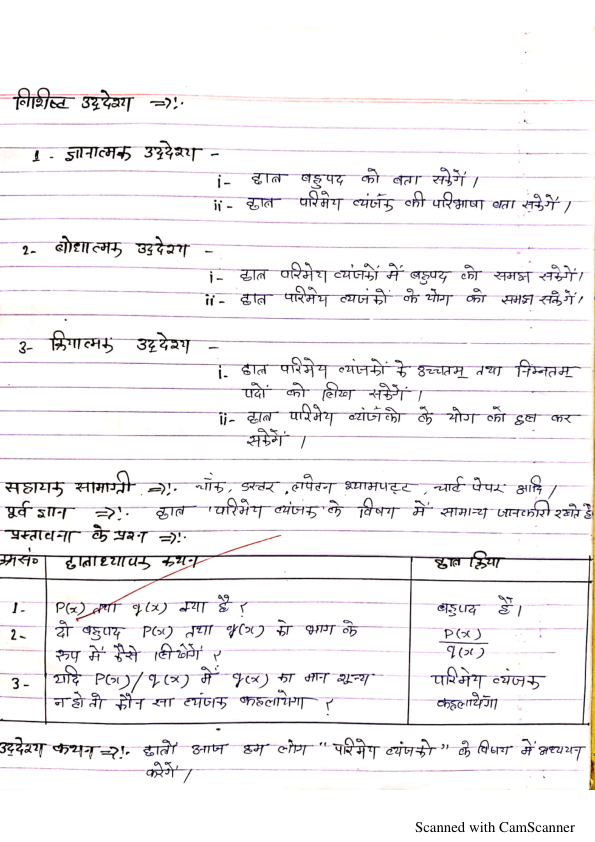 विशिष्ट उद्देश्य ⇒!·
1 - ज्ञानात्मक उद्देश्य -
i- छात्र बहुपद को बता सकेगें ।
ii - छात्र परिमेय व्यंजक की परिभाषा बता सकेगें ।
2- बोधात्मक उद्देश्य -
i- छात्र परिमेय व्यंजकों में बहुपद को समझ सकेगें।
ii - छात्र परिमेय व्यजंकों के योग को समझ सकेगें।
3- क्रियात्मक उद्देश्य -
i- छात्र परिमेय व्यंजकों के उच्चतम् तथा निम्नतम्
पदों को लिख सकेगें ।
ii- छात्र परिमेय व्यंजको के योग को हल कर
सकेगें ।
सहायक सामाग्री ⇒!· चॉक, डस्टर, लपेटन श्यामपट्ट, चार्ट पेपर आदि।
पूर्व ज्ञान ⇒!· छात्र 'परिमेय व्यंजक' के विषय में सामान्य जानकारी रखते है
प्रस्तावना के प्रश्न ⇒!·
क्रम सं० छात्राध्यापक कथन छात्र क्रिया
1- P(x) तथा q(x) क्या है ? बहुपद हैं।
2- दो बहुपद P(x) तथा q(x) को भाग के P(x)
रूप में कैसे लिखेगें ? q(x)
3- यदि P(x)/q(x) में q(x) का मान शून्य परिमेय व्यंजक
न हो तो कौन सा व्यंजक कहलायेगा ? कहलायेगा
उद्देश्य कथन ⇒!· छात्रों आज हम लोग "परिमेय व्यंजको" के विषय में अध्ययन
करेगें ।
Scanned with CamScanner